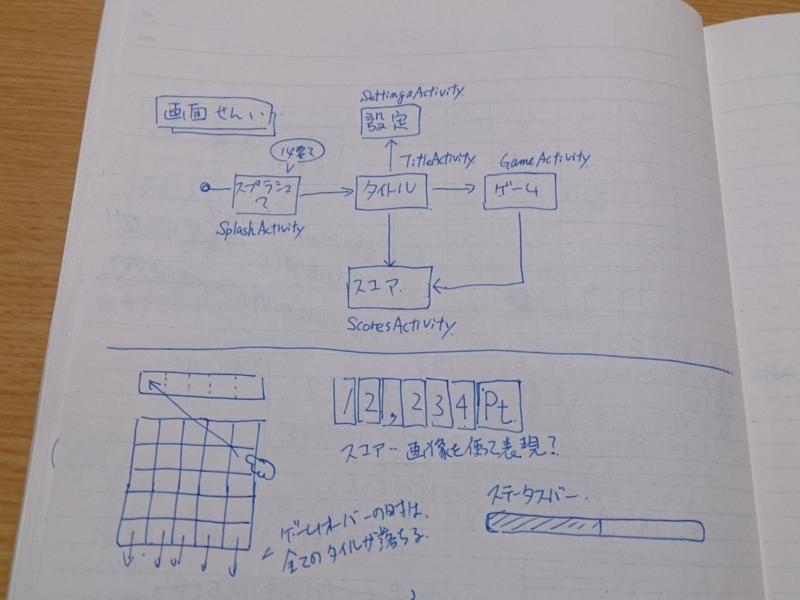 画面せんい
SettingsActivity
設定
TitleActivity
GameActivity
スプラッシュ
?
タイトル
ゲーム
SplashActivity
スコア
ScoresActivity
12,234Pt
スコアー画像を使って表現?
ステータスバー
ゲームオーバーの時は、
全てのタイルが落ちる。